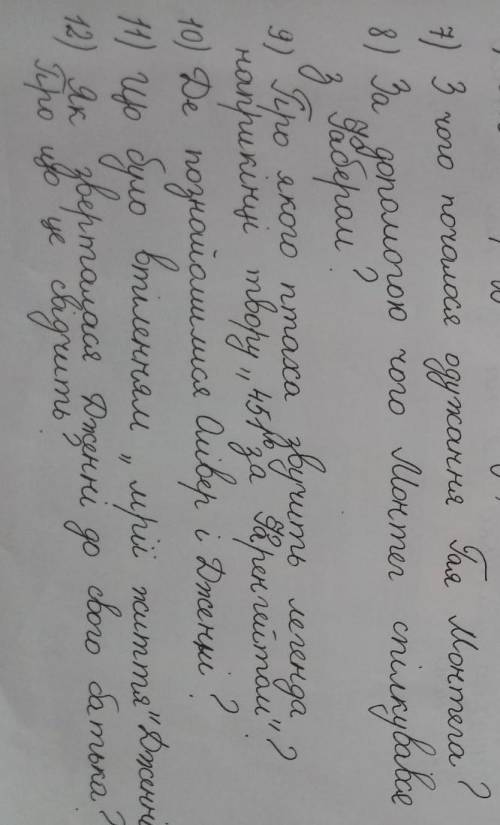 7) З чого почалося одужання Гая Монтега?
8) За допомогою чого Монтег спілкувався
з Фабером?
9) Про якого птаха звучить легенда
наприкінці твору „451° за Фаренгейтом"?
10) Де познайомилися Олівер і Дженні?
11) Що було втіленням „мрії життя" Дженні
12) Як зверталася Дженні до свого батька?
Про що це свідчить?